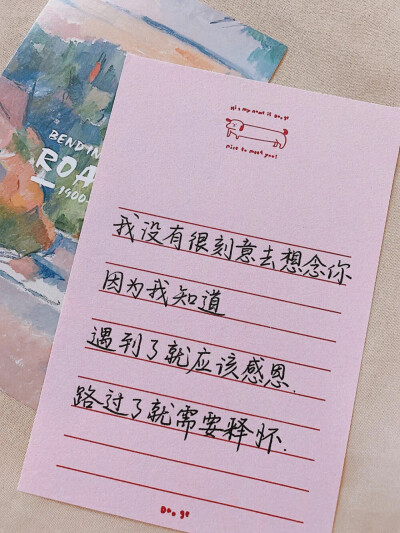 BENDIN
ROA
1900
Hi my name is Doo ge
nice to meet you!
我没有很刻意去想念你
因为我知道
遇到了就应该感恩.
路过了就需要释怀.
Doo ge